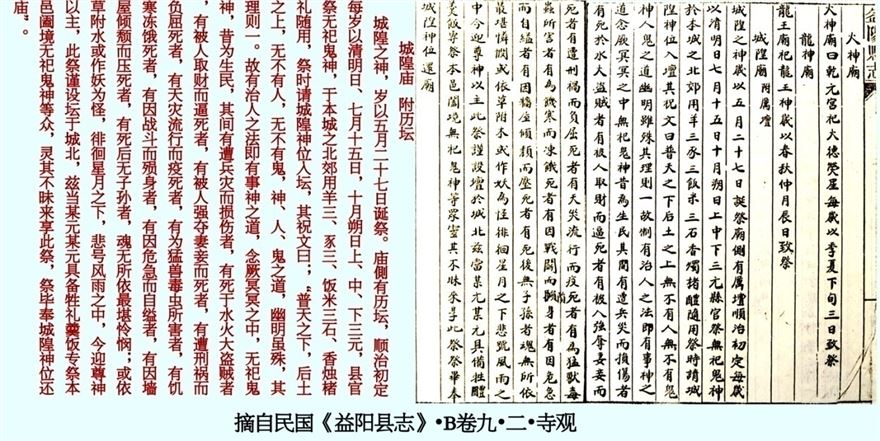 益陽縣志
火神廟
火神廟曰乾元宮祀大德熒星每歲以季夏下旬三日致祭
龍神廟
龍王廟祀龍王神歲以春秋仲月辰日致祭
城隍廟 附厲壇
城隍之神歲以五月二十七日誕祭廟側有厲壇順治初定每歲
以清明日七月十五日十月朔日上中下三元縣官祭無祀鬼神
於本城之北郊用羊三豕三飯米三石香燭楮醴隨用祭時請城
隍神位入壇其祝文曰普天之下后土之上無不有人無不有鬼
神人鬼之道幽明雖殊其理則一故制有治人之法即有事神之
道念厥冥冥之中無祀鬼神昔為生民其間有遭兵災而損傷者
有死於水火盜賊者有被人取財而逼死者有被人強奪妻妾而
死者有遭刑禍而負屈死者有天災流行而疫死者有為猛獸毒
蟲所害者有為饑寒而凍餓死者有因戰鬪而殞身者有因危急
而自縊者有因牆屋傾頹而壓死者有死後無子孫者魂無所依
最堪憐憫或依草附木或作妖為怪徘徊星月之下悲號風雨之
中今迎尊神以主此祭謹設壇於城北茲當某元某元具備牲醴
羹飯專祭本邑闔境無祀鬼神等眾靈其不昧來享此祭祭畢奉
城隍神位還廟
城隍庙 附历坛
城隍之神,岁以五月二十七日诞祭。庙侧有历坛,顺治初定
每岁以清明日、七月十五日,十月朔日上、中、下三元,县官
祭无祀鬼神,于本城之北郊用羊三、豕三、饭米三石、香烛楮
礼随用,祭时请城隍神位入坛,其祝文曰;“普天之下,后土
之上,无不有人,无不有鬼,神、人、鬼之道,幽明虽殊,其
理则一。故有治人之法即有事神之道,念厥冥冥之中,无祀鬼
神,昔为生民,其间有遭兵灾而损伤者,有死于水火大盗贼者
,有被人取财而逼死者,有被人强夺妻妾而死者,有遭刑祸而
负屈死者,有天灾流行而疫死者,有为猛兽毒虫所害者,有饥
寒冻饿死者,有因战斗而殒身者,有因危急而自缢者,有因墙
屋倾颓而压死者,有死后无子孙者,魂无所依最堪怜悯;或依
草附水或作妖为怪,徘徊星月之下,悲号风雨之中,今迎尊神
以主,此祭谨设坛于城北,兹当某元某元具备牲礼羹饭专祭本
邑阖境无祀鬼神等众,灵其不昧来享此祭,祭毕奉城隍神位还
庙”。
摘自民国《益阳县志》•B卷九•二•寺观